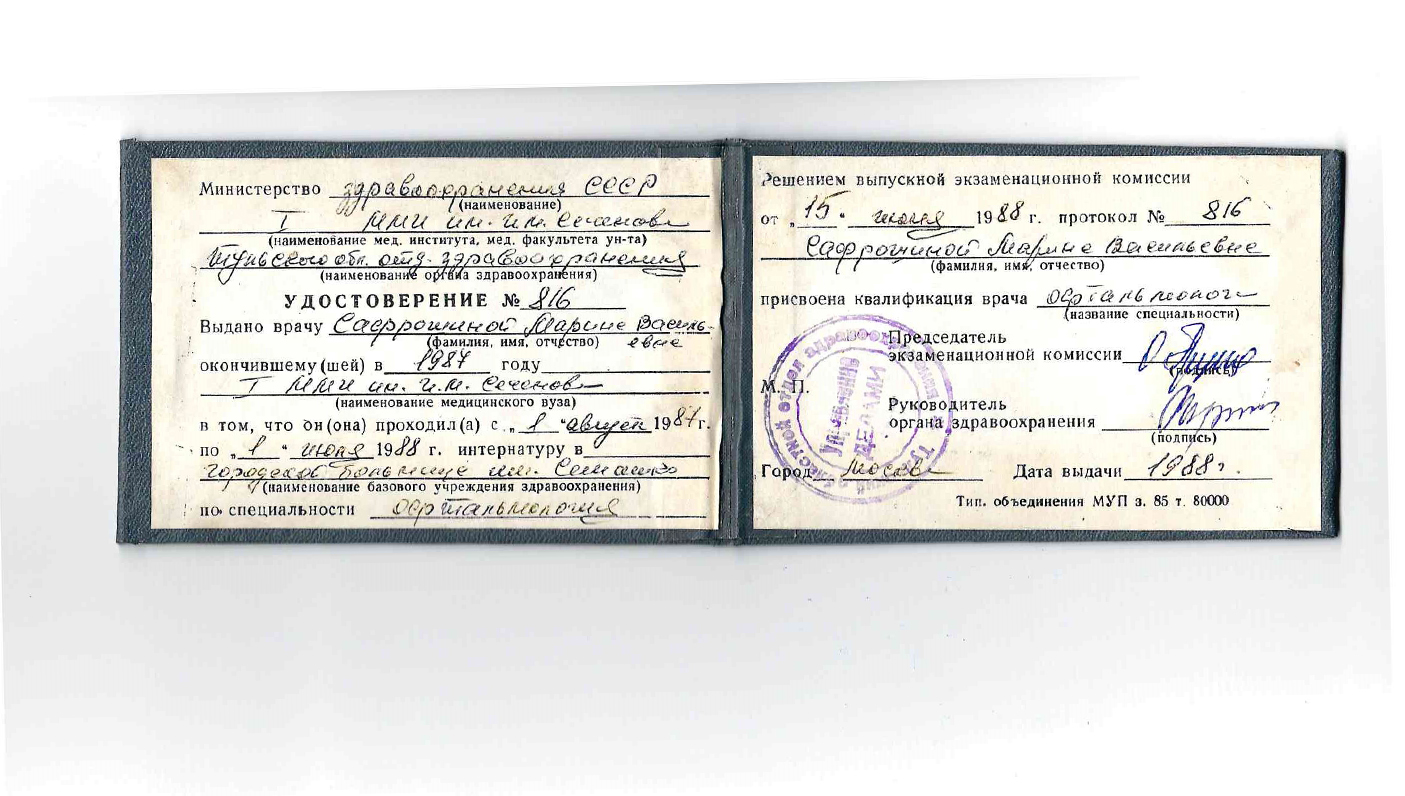 Министерство здравоохранения СССР
(наименование)
I ММИ им. И.М. Сеченова
(наименование мед. института, мед. факультета ун-та)
Тульского обл. отд. здравоохранения
(наименование органа здравоохранения)
УДОСТОВЕРЕНИЕ № 816
Выдано врачу Сафрошиной Марине Василь-
(фамилия, имя, отчество) евне
окончившему (шей) в 1987 году
I ММИ им. И.М. Сеченова
(наименование медицинского вуза)
в том, что он (она) проходил (а) с „ 1 “ август 1987 г.
по „ 1 “ июля 1988 г. интернатуру в
городской больнице им. Семашко
(наименование базового учреждения здравоохранения)
по специальности офтальмология
Решением выпускной экзаменационной комиссии
от „ 15 “ июня 1988 г. протокол № 816
Сафрошиной Марине Васильевне
(фамилия, имя, отчество)
присвоена квалификация врача офтальмолог
(название специальности)
Председатель
экзаменационной комиссии
(подпись)
М. П.
Руководитель
органа здравоохранения
(подпись)
Город Москва Дата выдачи 1988 г.
Тип. объединения МУП з. 85 т. 80000
отдел здравоохранения
Управление
ДЕЛАМИ